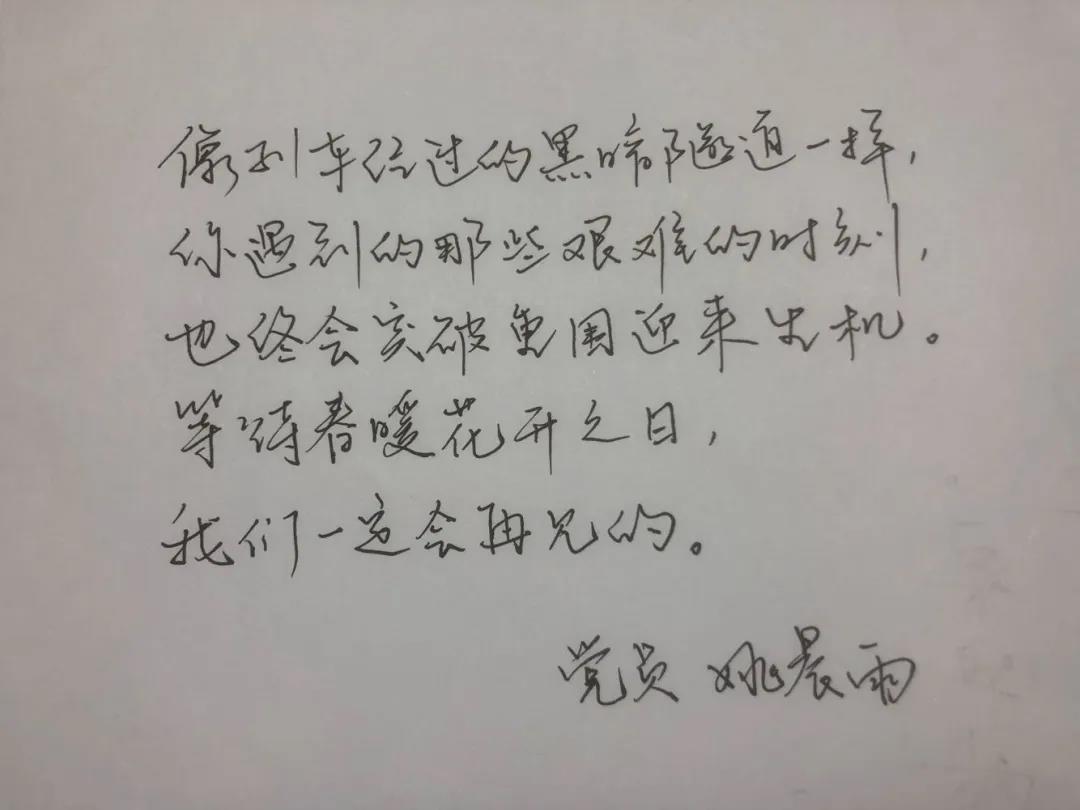 像列车经过的黑暗隧道一样，
你遇到的那些艰难的时刻，
也终会突破重围迎来生机。
等待春暖花开之日，
我们一定会再见的。
党员 姚晨雨